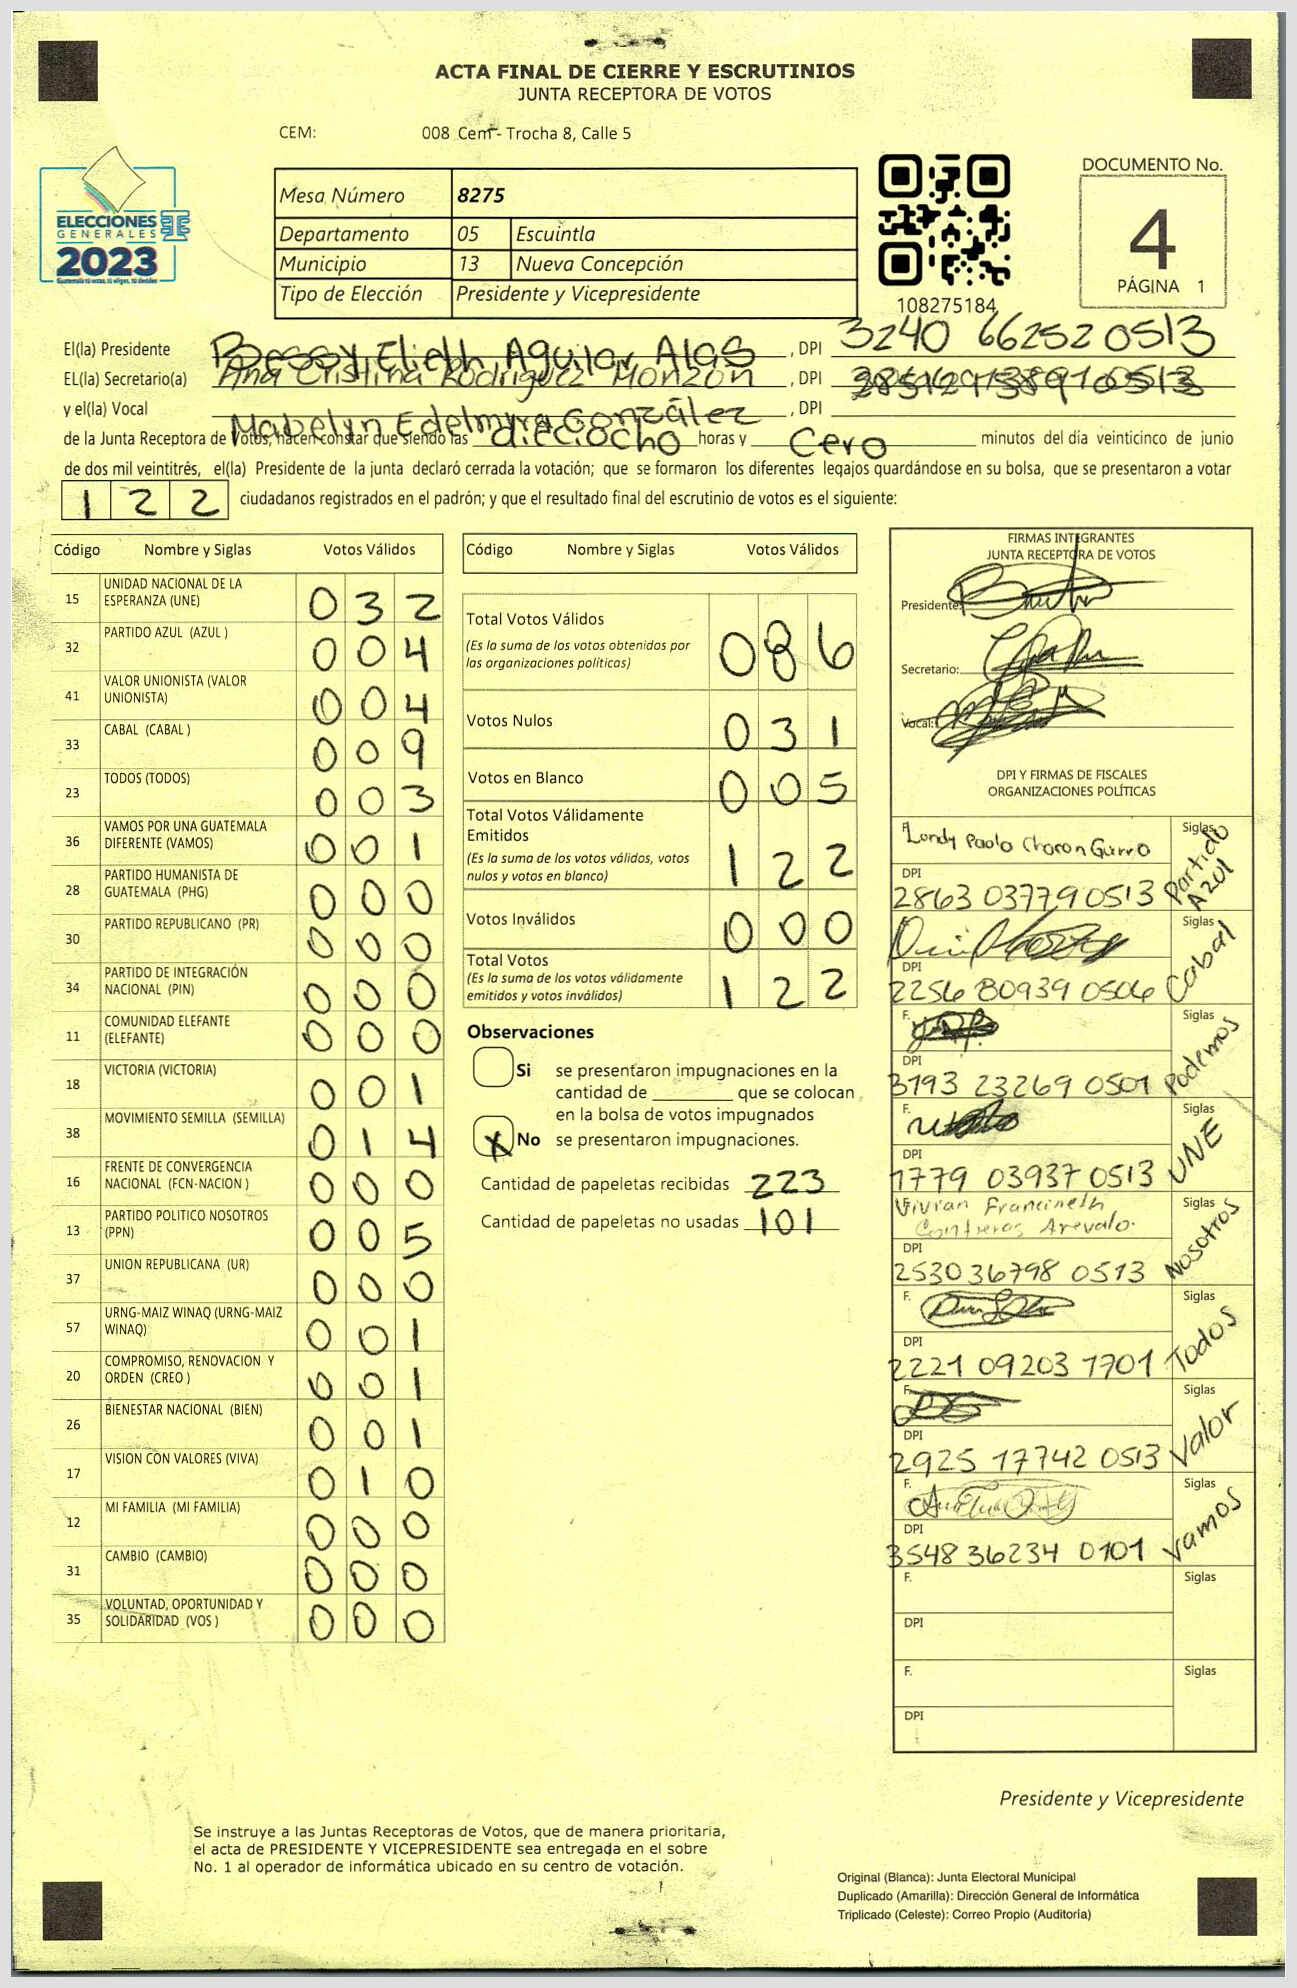 ACTA FINAL DE CIERRE Y ESCRUTINIOS
JUNTA RECEPTORA DE VOTOS
CEM: 008 Cem - Trocha 8, Calle 5
ELECCIONES
GENERALES
2023
Mesa Número 8275
Departamento 05 Escuintla
Municipio 13 Nueva Concepción
Tipo de Elección Presidente y Vicepresidente
108275184
DOCUMENTO No.
4
PÁGINA 1
El(la) Presidente Bessy Elieth Aguilar Alas , DPI 3240 66252 0513
EL(la) Secretario(a) Ana Cristina Rodriguez Monzón , DPI
y el(la) Vocal Mabelyn Edelmyra González , DPI
de la Junta Receptora de Votos, hacen constar que siendo las dieciocho horas y Cero minutos del día veinticinco de junio
de dos mil veintitrés, el(la) Presidente de la junta declaró cerrada la votación; que se formaron los diferentes legajos guardándose en su bolsa, que se presentaron a votar
1 2 2 ciudadanos registrados en el padrón; y que el resultado final del escrutinio de votos es el siguiente:
Código Nombre y Siglas Votos Válidos
15 UNIDAD NACIONAL DE LA ESPERANZA (UNE) 0 3 2
32 PARTIDO AZUL (AZUL ) 0 0 4
41 VALOR UNIONISTA (VALOR UNIONISTA) 0 0 4
33 CABAL (CABAL ) 0 0 9
23 TODOS (TODOS) 0 0 3
36 VAMOS POR UNA GUATEMALA DIFERENTE (VAMOS) 0 0 1
28 PARTIDO HUMANISTA DE GUATEMALA (PHG) 0 0 0
30 PARTIDO REPUBLICANO (PR) 0 0 0
34 PARTIDO DE INTEGRACIÓN NACIONAL (PIN) 0 0 0
11 COMUNIDAD ELEFANTE (ELEFANTE) 0 0 0
18 VICTORIA (VICTORIA) 0 0 1
38 MOVIMIENTO SEMILLA (SEMILLA) 0 1 4
16 FRENTE DE CONVERGENCIA NACIONAL (FCN-NACION ) 0 0 0
13 PARTIDO POLITICO NOSOTROS (PPN) 0 0 5
37 UNION REPUBLICANA (UR) 0 0 0
57 URNG-MAIZ WINAQ (URNG-MAIZ WINAQ) 0 0 1
20 COMPROMISO, RENOVACION Y ORDEN (CREO ) 0 0 1
26 BIENESTAR NACIONAL (BIEN) 0 0 1
17 VISION CON VALORES (VIVA) 0 1 0
12 MI FAMILIA (MI FAMILIA) 0 0 0
31 CAMBIO (CAMBIO) 0 0 0
35 VOLUNTAD, OPORTUNIDAD Y SOLIDARIDAD (VOS ) 0 0 0
Código Nombre y Siglas Votos Válidos
Total Votos Válidos 0 8 6
(Es la suma de los votos obtenidos por
las organizaciones políticas)
Votos Nulos 0 3 1
Votos en Blanco 0 0 5
Total Votos Válidamente
Emitidos 1 2 2
(Es la suma de los votos válidos, votos
nulos y votos en blanco)
Votos Inválidos 0 0 0
Total Votos 1 2 2
(Es la suma de los votos válidamente
emitidos y votos inválidos)
Observaciones
Si se presentaron impugnaciones en la
cantidad de que se colocan
en la bolsa de votos impugnados
X No se presentaron impugnaciones.
Cantidad de papeletas recibidas 223
Cantidad de papeletas no usadas 101
FIRMAS INTEGRANTES
JUNTA RECEPTORA DE VOTOS
Presidente:
Secretario:
Vocal:
DPI Y FIRMAS DE FISCALES
ORGANIZACIONES POLÍTICAS
F. Londy Paolo Chacon Siglas Partido Azul
DPI 2863 03779 0513
Siglas Cabal
DPI 2256 80939 0506
F. Siglas Podemos
DPI 3193 23269 0501
F. Siglas UNE
DPI 1779 03937 0513
F. Vivian Francineth Contreras Arevalo. Siglas Nosotros
DPI 2530 36798 0513
F. Siglas Todos
DPI 2221 09203 1701
F. Siglas Valor
DPI 2925 17742 0513
F. Siglas Vamos
DPI 3548 36234 0101
F. Siglas
DPI
F. Siglas
DPI
Presidente y Vicepresidente
Se instruye a las Juntas Receptoras de Votos, que de manera prioritaria,
el acta de PRESIDENTE Y VICEPRESIDENTE sea entregada en el sobre
No. 1 al operador de informática ubicado en su centro de votación.
Original (Blanca): Junta Electoral Municipal
Duplicado (Amarilla): Dirección General de Informática
Triplicado (Celeste): Correo Propio (Auditoría)